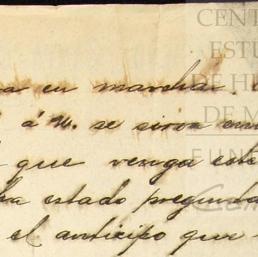 CENT
ESTU
DE HI
DE M
FUN
en marcha.
á V. se sirva
que venga este
ha estado pregunta
el anticipo que